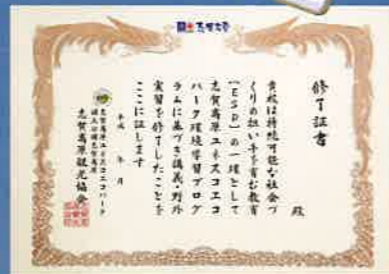 修了証書
殿
貴校は持続可能な社会づ
くりの担い手を育む教育
(ESD)の一環として
志賀高原ユネスコエコ
パーク環境学習プログ
ラムに基づき講義・野外
実習を修了したことを
ここに証します
平成 年 月
志賀高原ユネスコエコパーク
国立公園志賀高原
志賀高原観光協会